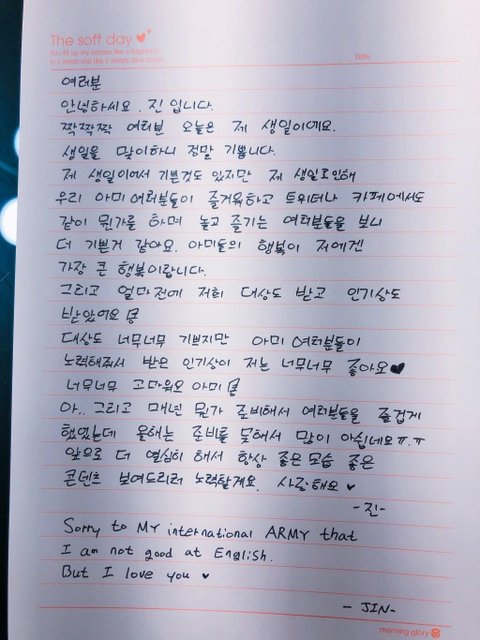 The soft day
Date:
여러분
안녕하세요. 진 입니다.
짝짝짝 여러분 오늘은 제 생일이에요.
생일을 맞이하니 정말 기쁩니다.
제 생일이여서 기쁜것도 있지만 제 생일로인해
우리 아미 여러분들이 즐거워하고 트위터나 카페에서도
같이 뭔가를 하며 놀고 즐기는 여러분들을 보니
더 기쁜거 같아요. 아미들의 행복이 저에겐
가장 큰 행복이랍니다.
그리고 얼마전에 저희 대상도 받고 인기상도
받았어요
대상도 너무너무 기쁘지만 아미 여러분들이
노력해줘서 받은 인기상이 저는 너무너무 좋아요♥
너무너무 고마워요 아미
아.. 그리고 매년 뭔가 준비해서 여러분들을 즐겁게
했었는데 올해는 준비를 못해서 많이 아쉽네요ㅠ.ㅠ
앞으로 더 열심히 해서 항상 좋은 모습 좋은
콘텐츠 보여드리려 노력할게요. 사랑해요♥
-진-
Sorry to MY international ARMY that
I am not good at English.
But I love you ♥
- JIN-
morning glory